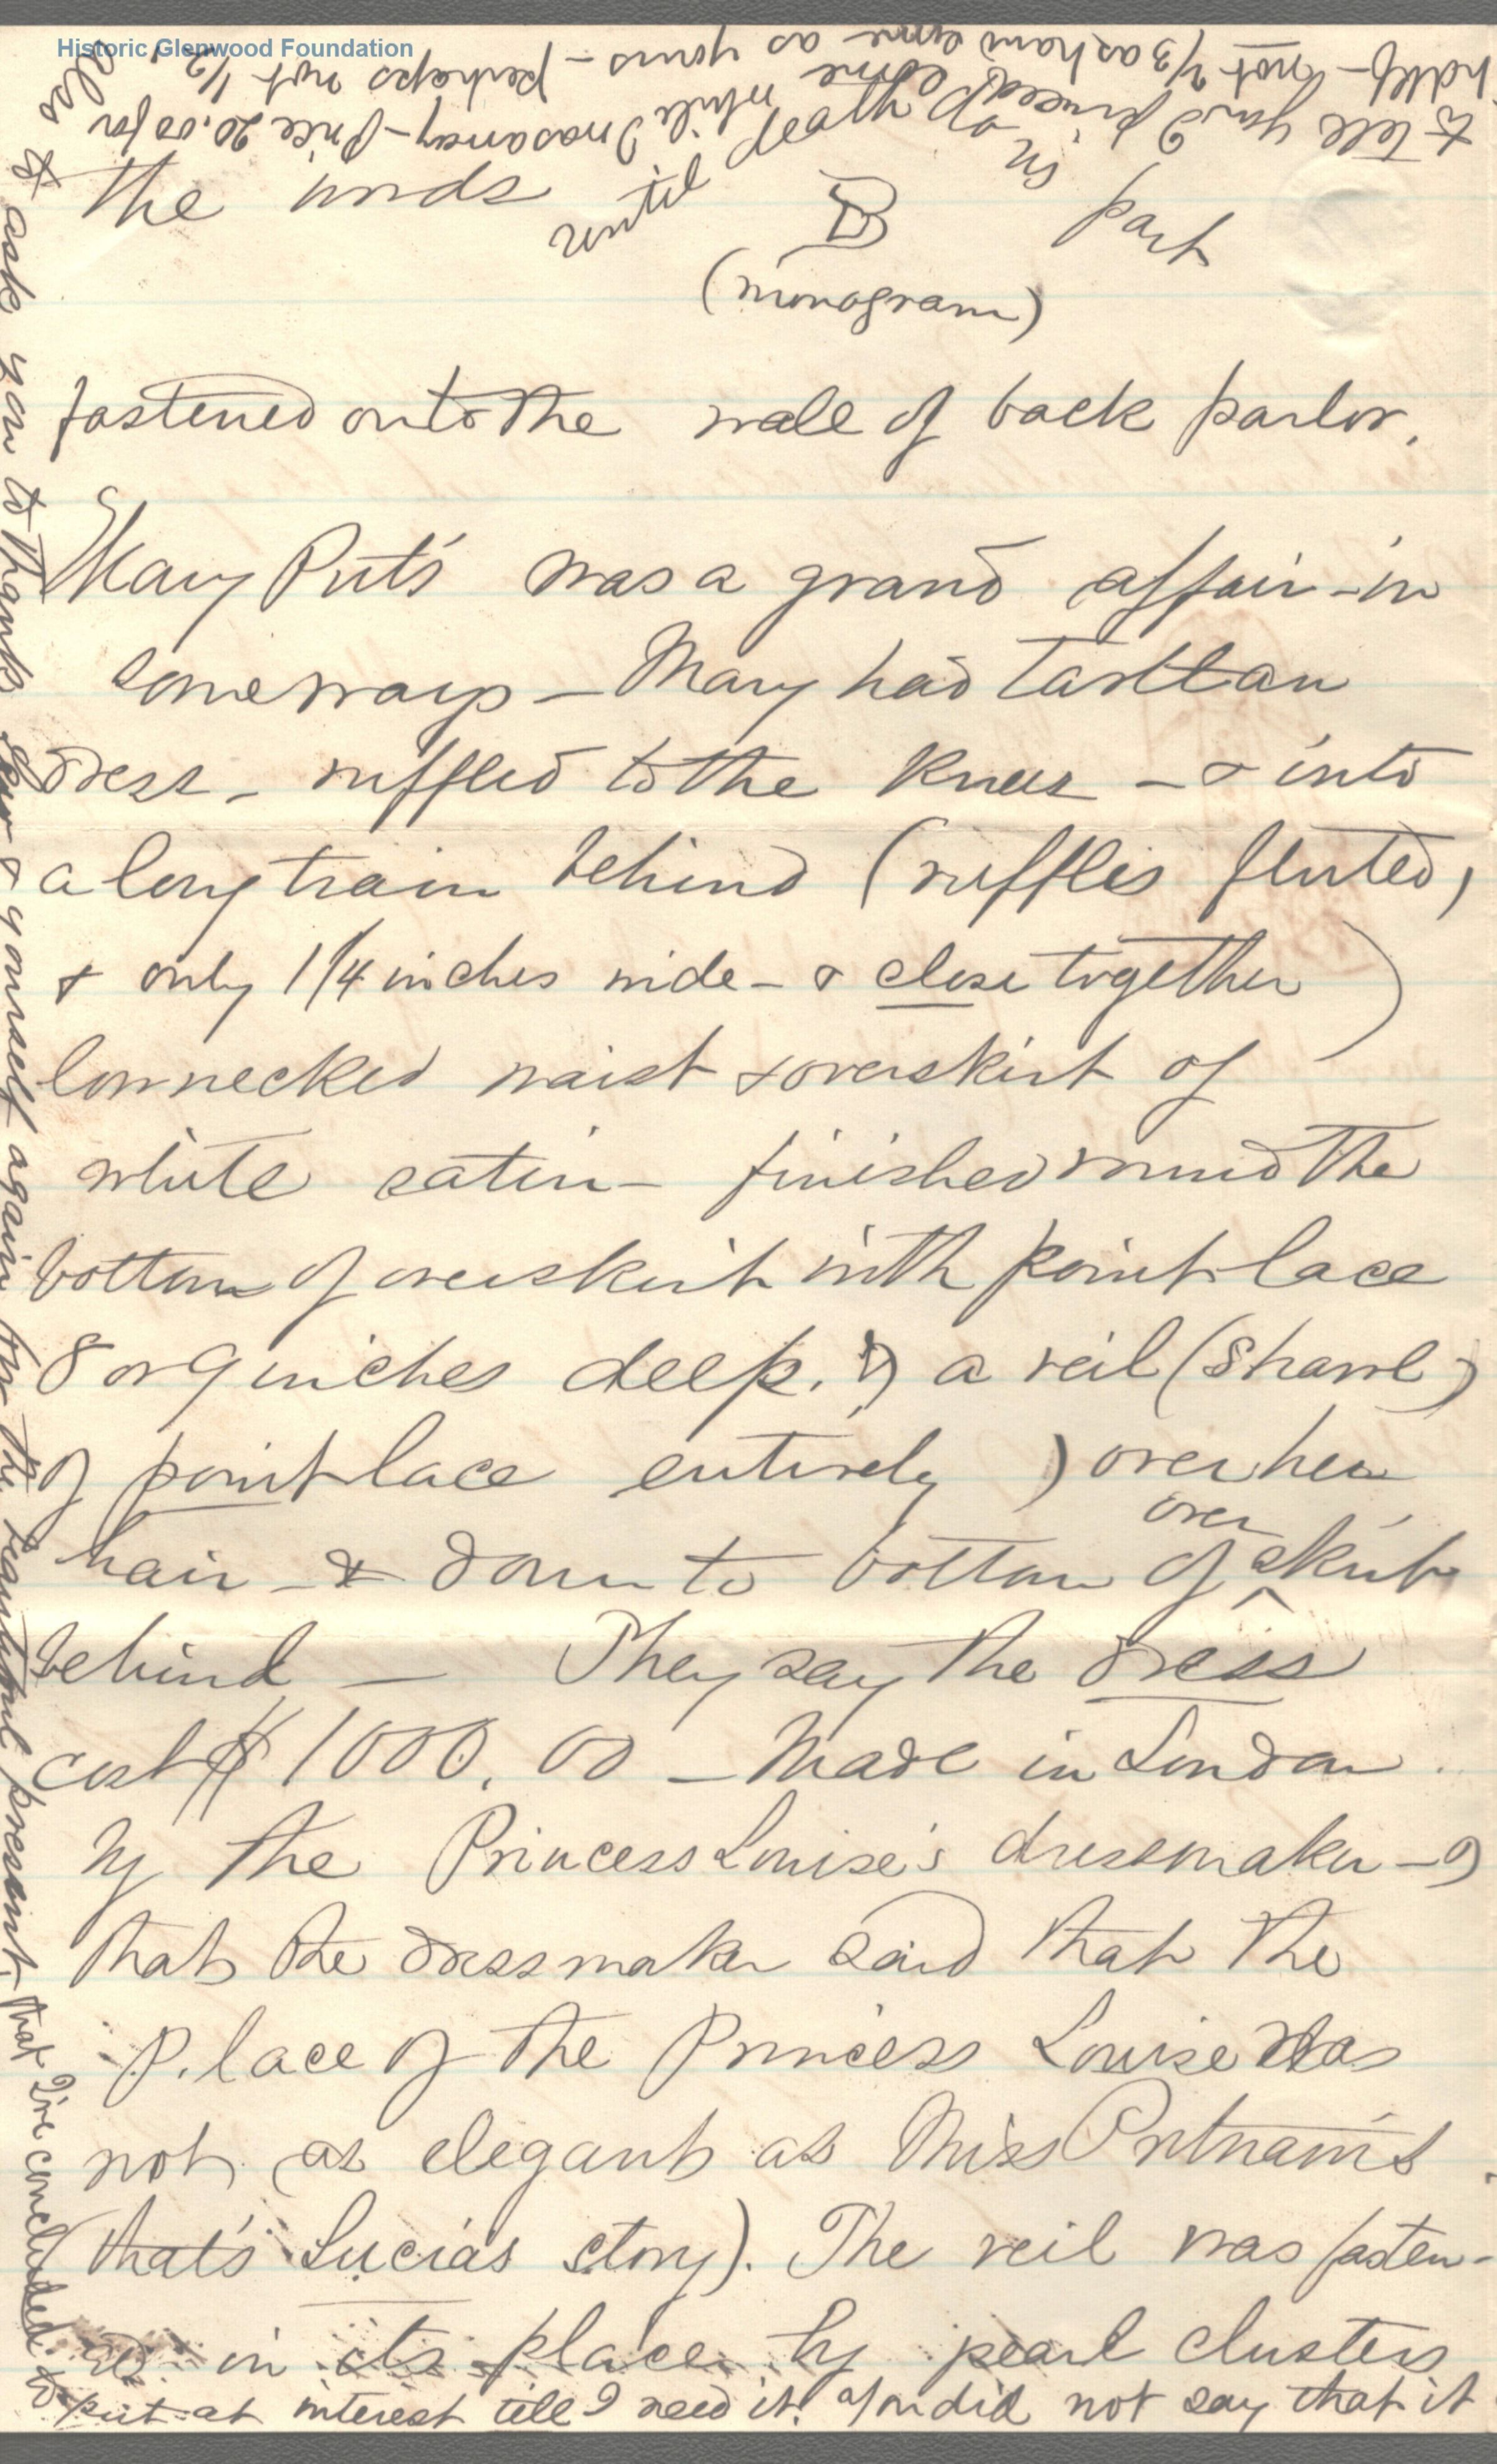 Historic Glenwood Foundation
to tell you I priced one
half - not 2/3 as handsome as yours - perhaps not 1/2,
while I was away - Price 20.00 for
the ends
until
in
part
(monogram)
fastened onto the wall of back parlor.
Mary Put's was a grand affair - in
some ways - Mary had Tarltan
dress - ruffled to the knees - & into
a long train behind (ruffles fluted,
& only 1 1/4 inches wide - & close together)
low necked waist & overskirt of
white satin - finished round the
bottom of overskirt with point lace
8 or 9 inches deep. & a veil (shawl)
of point lace entirely) over her
hair - & down to bottom of overskirt
behind - They say the dress
cost $1000.00 - Made in London
by the Princess Louise's dressmaker - &
that the dressmaker said that the
P. lace of the Princess Louise was
not as elegant as Miss Putnam's.
that's Lucia's story). The veil was fasten-
ed in its place by pearl clusters
also to ask you to thank & yourself again for the beautiful present, that I've concluded to
put at interest till I need it. You did not say that it